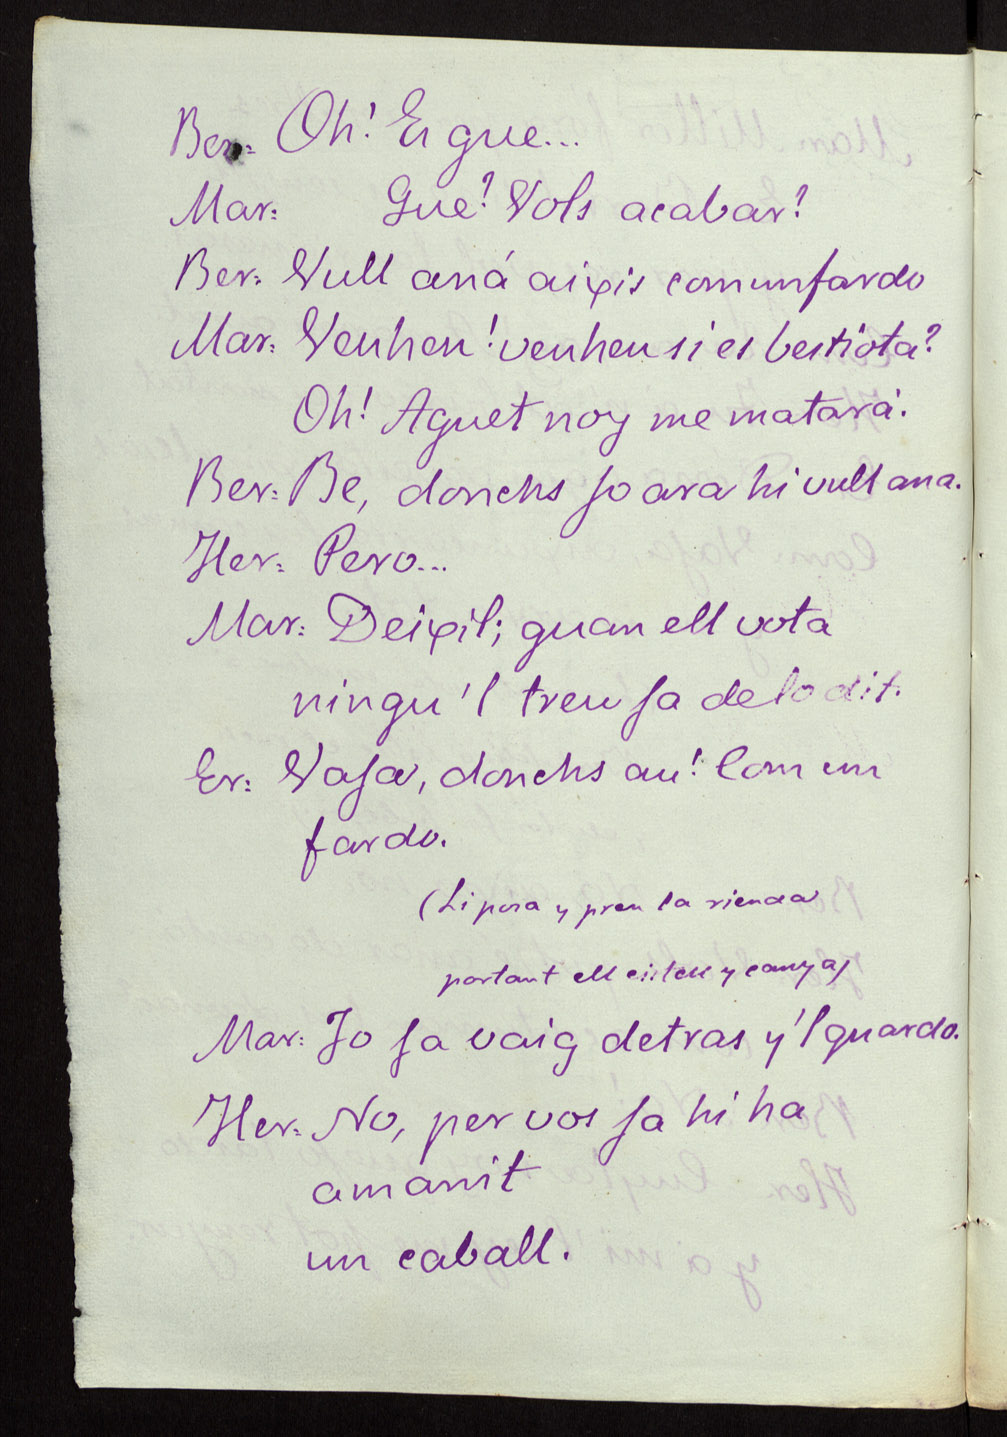 Ber: Oh! Es que...
Mar: Que? Vols acabar?
Ber: Vull aná aixis com un fardo
Mar: Veuhen! veuhen si es bestiota?
Oh! Aquet noy me matará.
Ber: Be, donchs jo ara hi vull ana.
Her: Pero...
Mar: Deixil; quan ell vota
ningu 'l treu ja de lo dit.
Er: Vaja, donchs au! Com un
fardo.
(Li posa y pren la rienda
portant ell cistell y canya)
Mar: Jo ja vaig detras y 'l guardo.
Her: No, per vos ja hi ha
amanit
un caball.